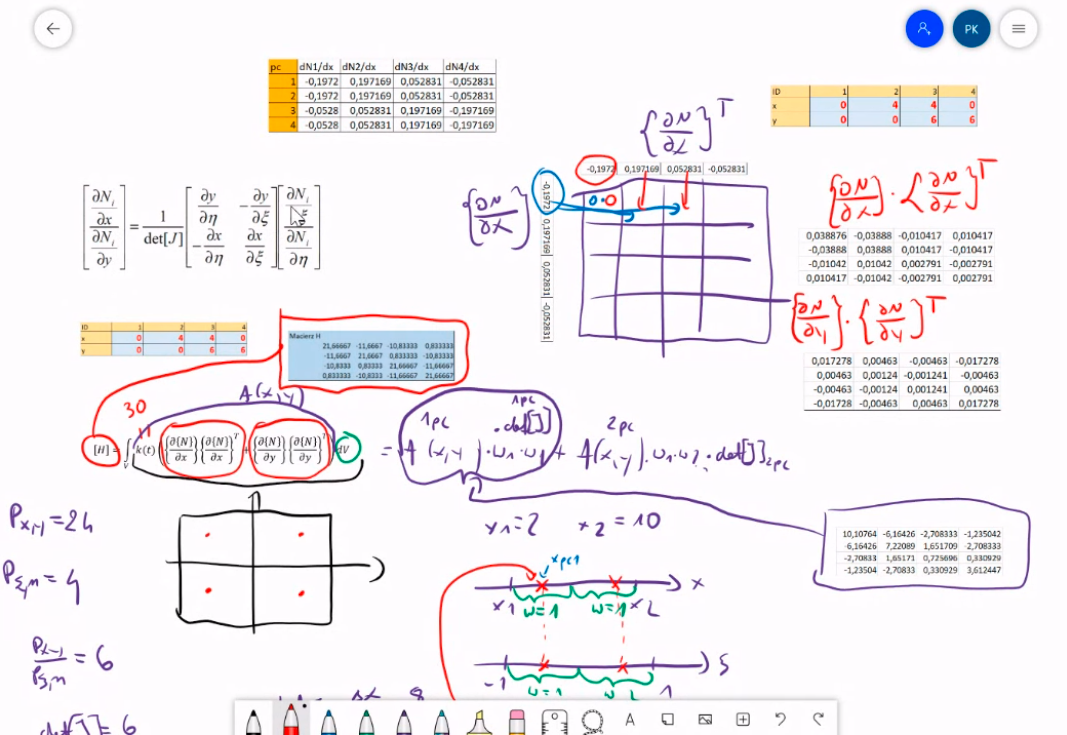 PK
pc dN1/dx dN2/dx dN3/dx dN4/dx
1 -0,1972 0,197169 0,052831 -0,052831
2 -0,1972 0,197169 0,052831 -0,052831
3 -0,0528 0,052831 0,197169 -0,197169
4 -0,0528 0,052831 0,197169 -0,197169
ID 1 2 3 4
x 0 4 4 0
y 0 0 6 6
{∂N/∂x}^T
-0,1972 0,197169 0,052831 -0,052831
{∂N/∂x}
-0,1972 0,197169 0,052831 -0,052831
{∂N/∂x} · {∂N/∂x}^T
0,038876 -0,03888 -0,010417 0,010417
-0,03888 0,038876 0,010417 -0,010417
-0,01042 0,010417 0,002791 -0,002791
0,010417 -0,01042 -0,002791 0,002791
[∂N_i/∂x ∂N_i/∂y] = 1/det[J] [∂y/∂η -∂y/∂ξ -∂x/∂η ∂x/∂ξ] [∂N_i/∂ξ ∂N_i/∂η]
{∂N/∂y} · {∂N/∂y}^T
0,017278 0,00463 -0,00463 -0,017278
0,00463 0,00124 -0,001241 -0,00463
-0,00463 -0,00124 0,001241 0,00463
-0,01728 -0,00463 0,00463 0,017278
ID 1 2 3 4
x 0 4 4 0
y 0 0 6 6
Macierz H
21,66667 -11,6667 -10,83333 0,833333
-11,6667 21,6667 0,833333 -10,83333
-10,8333 0,83333 21,66667 -11,66667
0,833333 -10,8333 -11,66667 21,66667
A(x,y)
30
[H] = ∫_V k(t) ({∂{N}/∂x}{∂{N}/∂x}^T + {∂{N}/∂y}{∂{N}/∂y}^T) dV = A(x,y) · w1 · w1 · det[J] 1pc + A(x,y) · w1 · w2 · det[J] 2pc
1pc
2pc
x1=2 x2=10
10,10764 -6,16426 -2,708333 -1,235042
-6,16426 7,22089 1,651709 -2,708333
-2,70833 1,65171 0,725696 0,330929
-1,23504 -2,70833 0,330929 3,612447
P x,y = 24
P ξ,η = 4
P x,y / P ξ,η = 6
det[J] = 6
xpc1
x1 w=1 w=1 x2 x
-1 w=1 1 ξ